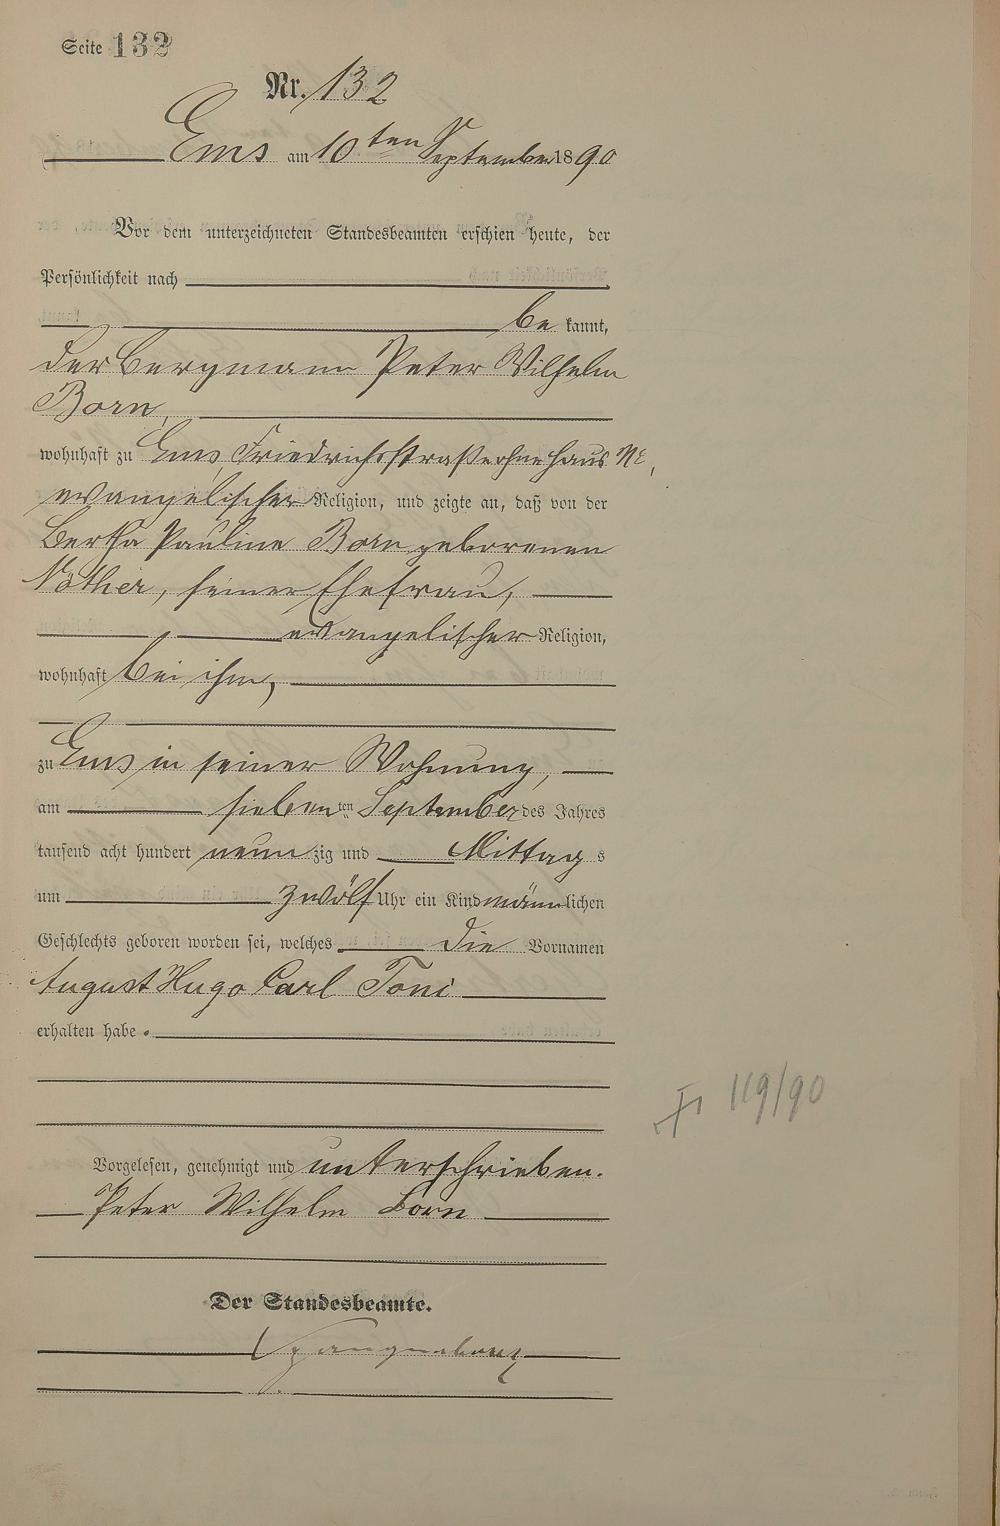 Seite 132
Nr. 132
Ems am 10ten September 1890
Vor dem unterzeichneten Standesbeamten erschien heute, der
Persönlichkeit nach
be kannt,
der Bergmann Peter Wilhelm
Born,
wohnhaft zu Ems, Friedrichsstraße ohne Haus Nr,
evangelischer Religion, und zeigte an, daß von der
Bertha Pauline Born geborenen
Nöther, seiner Ehefrau,
evangelischer Religion,
wohnhaft bei ihm,
zu Ems in seiner Wohnung,
am siebenten September des Jahres
tausend acht hundert neunzig und Mittags
um zwölf Uhr ein Kind männlichen
Geschlechts geboren worden sei, welches die Vornamen
August Hugo Carl Toni
erhalten habe.
Vorgelesen, genehmigt und unterschrieben.
Peter Wilhelm Born
Der Standesbeamte.
119/90